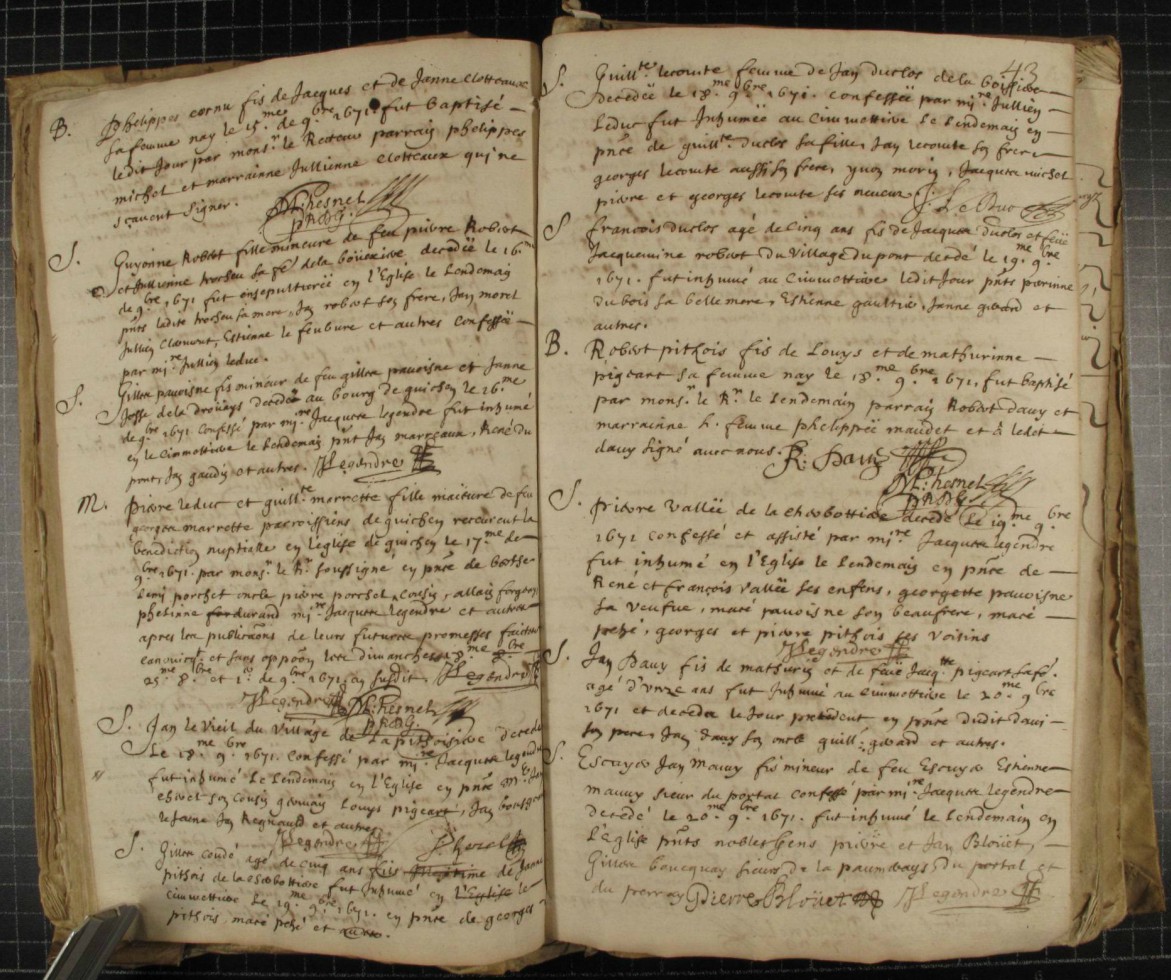 B. Phelippes cornu fis de Jacques et de Janne Clotteaux
sa femme nay le 15.me de 9.bre 1671. fut baptisé
ledit Jour par mons.r le Recteur parrain phelippes
michel et marrainne Jullienne Clotteaux qui ne
sçavent signer.
S. Guyonne Robert fille mineure de feu pierre Robert
et Jullienne trochu sa fe. de la decedée le 16.me
de 9.bre 1671 fut ensepulturée en l'Eglise le Lendemain
pnts ladite trochu sa mere, Jan robert son frere, Jan morel
Jullien Estienne le feubure et autres Confessée
par mi.re Jullien Leduc.
S. Gilles pavoisne fis mineur de feu gilles pavoisne et Janne
Josse de la decedé au bourg de guichen le 16.me
de 9.bre 1671. Confessé par mi.re Jacques legendre fut inhumé
en le Cimmettiere le Lendemain pnt Jan marteaux, René du
pont, Jan gaudin et autres. JLegendre
M. Pierre leduc et guill.te marrette fille maieure de feu
georges marrette parroissiens de guichen receurent la
benediction nuptialle en l'eglise de guichen le 17.me de
9.bre 1671. par mons.r le R.r soussigné en pnce de
porchet oncle pierre porchel cousin, allain
phelinne durand mi.re Jacques legendre et autres
apres les publications de leurs futures promesses faictes
et sans oppoon les dimanches 18.me
25.me 8.bre et 1.r de 9.bre 1671. en susdit. JLegendre
JLegendre M. Chesnel
P.R.D.G.
S. Jan le Vieil du Village de La pithoisiere decedé
Le 18.me 9.bre 1671. Confessé par mi.re Jacques legendre
fut inhumé Le Lendemain en l'Eglise en pnce
son Cousin germain Louys pigeart, Jan
le Jeune Jan Regnauld et autres
JLegendre
S. Gilles coudé agé de cinq ans fils de Janne
pithois de la Chabottiere fut inhumé en l'Eglise le
Cimmettiere Le 19.me 9.bre 1671. en pnce de georges
pithois, macé pehé et autres.
43
S. Guill.te lecomte femme de Jan duclos de la boissiere
decedée le 18.me 9.bre 1671. confessée par mi.re Jullien
Leduc fut Inhumée au Cimmettiere Le Lendemain en
pnce de guill.te duclos sa fille, Jan lecomte son frere
georges lecomte aussi son frere, yvon morin, Jacques michel
pierre et georges lecomte ses neveux. J. Le Duc
S francois duclos agé de Cinq ans fis de Jacques duclos et feüe
Jacquemine robert du Village du pont decedé le 19.me 9.bre
1671. fut inhumé au Cimmettiere ledit Jour pnts perrinne
dubois sa belle mere, Estienne gaultier, Janne gerard et
autres.
B. Robert pithois fis de Louys et de mathurinne
pigeart sa femme nay le 18.me 9.bre 1671, fut baptisé
par mons.r le R.r le Lendemain parrain Robert davy et
marrainne h. femme phelippes maudet et a ledit
davy signé avec nous. R: Davy
M. Chesnel
P.R.D.G.
S. Pierre Vallée de la Chabottiere decedé Le 19.me 9.bre
1671 confessé et assisté par mi.re Jacques legendre
fut inhumé en l'Eglise le Lendemain en pnce de
René et françois Vallée ses enfens, georgette pavoisne
sa veufve, macé pavoisne son beaufrere, macé
pehé, georges et pierre pithois ses Voisins
JLegendre
S. Jan Davy fis de mathurin et de feüe Jacq.tte pigeart sa fe.
agé d'unze ans fut Inhumé au Cimmettiere le 20.me 9.bre
1671 et decedé le Jour precedent en pnce dudit davi
son pere, Jan davy son oncle guill. gerard et autres.
S. Escuyer Jan mauvy fis mineur de feu Escuyer Estienne
mauvy sieur du portal confessé par mi.re Jacques legendre
decedé le 20.me 9.bre 1671. fut inhumé le Lendemain en
L'eglise pnts nobles gens pierre et Jan Bloüet,
Gilles sieurs de la du portal et
du perray Pierre Bloüet JLegendre